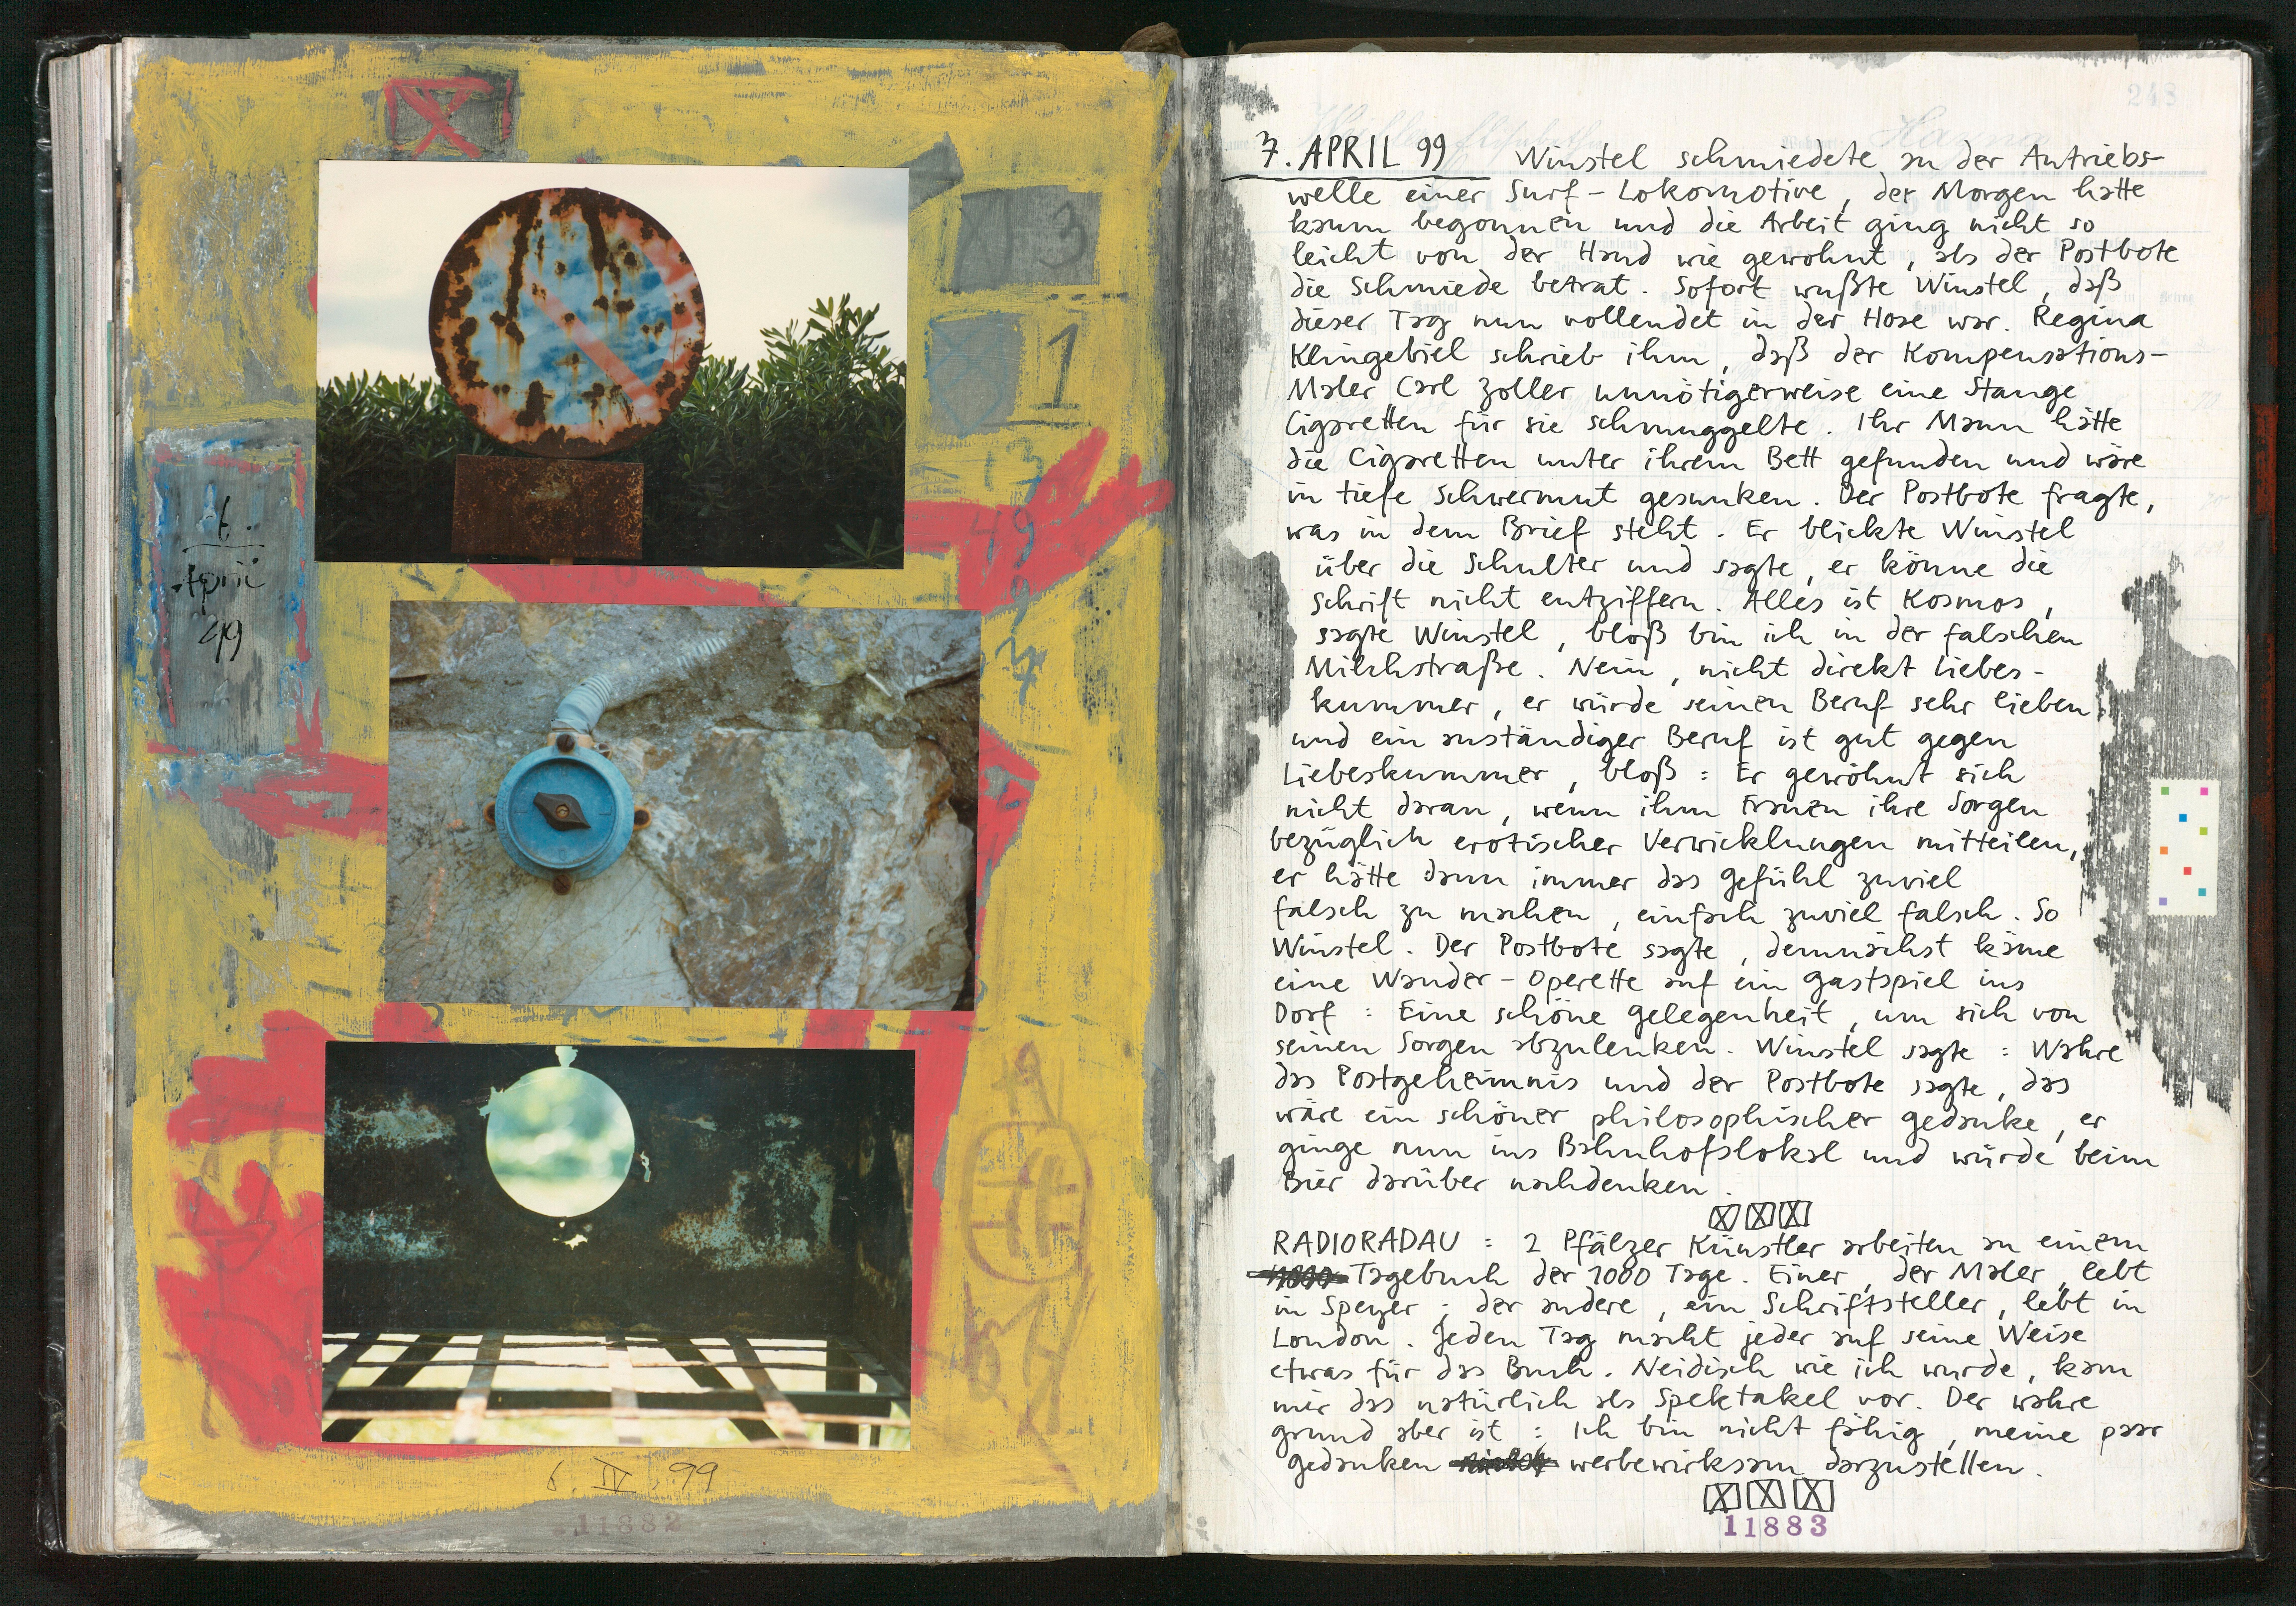 3
1
13
49
9
6.
April
99
6. IV. 99
11882
248
7. APRIL 99 Winstel schmiedete an der Antriebs-
welle einer Surf-Lokomotive, der Morgen hatte
kaum begonnen und die Arbeit ging nicht so
leicht von der Hand wie gewohnt, als der Postbote
die Schmiede betrat. Sofort wußte Winstel, daß
dieser Tag nun vollendet in der Hose war. Regina
Klingebiel schrieb ihm, daß der Kompensations-
Maler Carl Zoller unnötigerweise eine Stange
Cigaretten für sie schmuggelte. Ihr Mann hätte
die Cigaretten unter ihrem Bett gefunden und wäre
in tiefe Schwermut gesunken. Der Postbote fragte,
was in dem Brief steht. Er blickte Winstel
über die Schulter und sagte, er könne die
Schrift nicht entziffern. Alles ist Kosmos,
sagte Winstel, bloß bin ich in der falschen
Milchstraße. Nein, nicht direkt Liebes-
kummer, er würde seinen Beruf sehr lieben
und ein anständiger Beruf ist gut gegen
Liebeskummer, bloß: Er gewöhnt sich
nicht daran, wenn ihm Frauen ihre Sorgen
bezüglich erotischer Verwicklungen mitteilen,
er hätte dann immer das Gefühl zuviel
falsch zu machen, einfach zuviel falsch. So
Winstel. Der Postbote sagte, demnächst käme
eine Wander-Operette auf ein Gastspiel ins
Dorf: Eine schöne Gelegenheit, um sich von
seinen Sorgen abzulenken. Winstel sagte: Wahre
das Postgeheimnis und der Postbote sagte, das
wäre ein schöner philosophischer Gedanke, er
ginge nun ins Bahnhofslokal und würde beim
Bier darüber nachdenken.
RADIORADAU: 2 Pfälzer Künstler arbeiten an einem
Tagebuch der 1000 Tage. Einer, der Maler, lebt
in Speyer; der andere, ein Schriftsteller, lebt in
London. Jeden Tag macht jeder auf seine Weise
etwas für das Buch. Neidisch wie ich wurde, kam
mir das natürlich als Spektakel vor. Der wahre
Grund aber ist: Ich bin nicht fähig, meine paar
Gedanken werbewirksam darzustellen.
11883